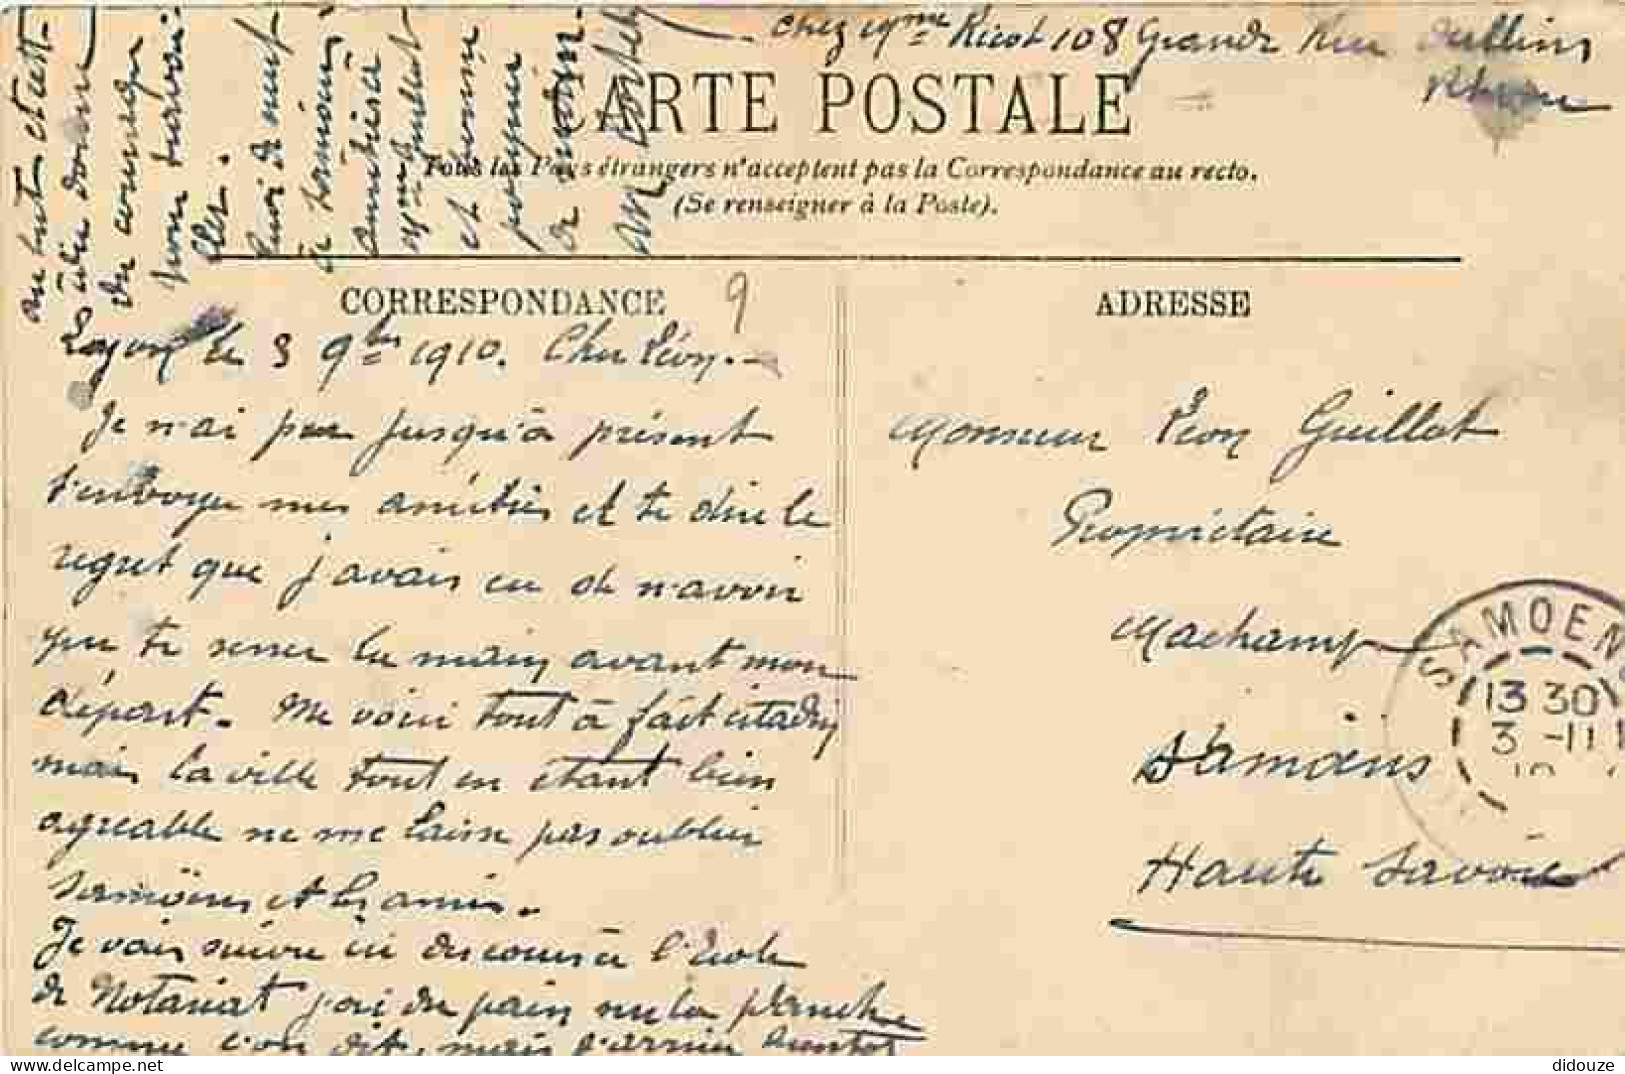 chez Mme Ricot 108 Grande Rue Oullins
Rhône
CARTE POSTALE
Tous les Pays étrangers n'acceptent pas la Correspondance au recto.
(Se renseigner à la Poste).
CORRESPONDANCE
9
ADRESSE
Lyon le 3 9bre 1910. Cher Léon. -
Je n'ai pu jusqu'à présent
t'envoyer mes amitiés et te dire le
regret que j'avais eu de n'avoir
pu te serrer la main avant mon
départ. Me voici tout à fait citadin
mais la ville tout en étant bien
agréable ne me laisse pas oublier
Samoëns et les amis.
Je vais suivre ici des cours à l'école
de Notariat j'ai du pain sur la planche
comme l'on dit, mais
au but et est-
du courage
pour travail
ler.
de neuf
à Samoëns
amitiés à
Mme Guillot
et bonne
poignée
de main
Monsieur Léon Guillot
Propriétaire
Machamp
Samoëns
Haute Savoie
SAMOENS
13 30
3 -11
10
didouze